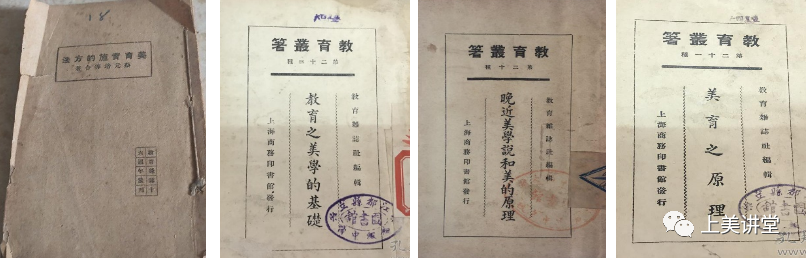 18
美育實施的方法
教育叢著
第二十一種
教育雜誌社編輯
教育之美學的基礎
上海商務印書館發行
圖書館
孔
教育叢著
第二十種
教育雜誌社編輯
晚近美學說和美的原理
上海商務印書館發行
教育叢著
第二十一種
教育雜誌社編輯
美育之原理
上海商務印書館發行
上美讲堂